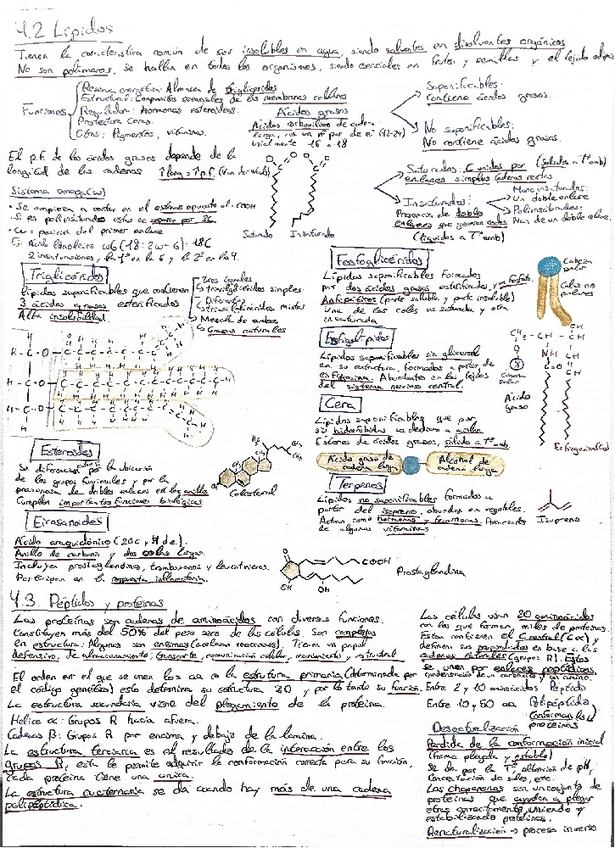 4.2 Lípidos
Tienen la característica común de ser insolubles en agua, siendo solventes en disolventes orgánicos
No son polímeros, se hallan en todos los organismos, siendo esenciales en frutos, semillas y el tejido adiposo
Funciones
Reserva energética: Almacén de triglicéridos
Estructural: Componentes esenciales de las membranas celulares
Reguladora: Hormonas esteroideas.
Protectora: Ceras.
Otras: Pigmentos, vitaminas.
Ácidos grasos
Ácidos carboxílicos de cadena
larga, con un nº par de
usualmente 16 o 18
Saponificables:
Contiene ácidos grasos.
No saponificables:
No contiene ácidos grasos.
El p.f. de los ácidos grasos depende de la
longitud de las cadenas
Saturados: C unidos por
enlaces simples
(sólidos a Tª amb)
Insaturados:
Presencia de dobles
enlaces que generan codos
(líquidos a Tª amb)
Monoinsaturados:
Un doble enlace
Poliinsaturados:
Más de un doble enlace.
Sistema omega (ω)
• Se empieza a contar en el extremo opuesto al -COOH
• Si es poliinsaturado
• ω = posición del primer enlace
Ej. Ácido linoleico ω6 (18:2 ω-6): 18C
2 insaturaciones, la 1ª en la 6 y la 2ª en la 9.
Saturado
Insaturado
Triglicéridos
Lípidos saponificables que contienen
3 ácidos grasos esterificados
Alta insolubilidad
• Tres iguales
↳ triacilglicéridos simples
• Diferentes
↳ triacilglicéridos mixtos
• Mezcla de ambos
↳ Grasas naturales
Fosfoglicéridos
Lípidos saponificables formados
por dos ácidos grasos esterificados, y un fosfato.
Anfipáticos (parte soluble y parte insoluble)
Una de las colas es saturada y otra
insaturada
Cabeza
polar
Colas no
polares
Esfingolípidos
Lípidos saponificables sin glicerol
en su estructura, formados a partir de
esfingosina. Abundantes en los tejidos
del sistema nervioso central.
Ácido
graso
Cera
Lípidos saponificables que por
su hidrofobidad se dedican a aislar
Ésteres de ácidos grasos, sólido a Tª amb
Ácido graso de
cadena larga
Alcohol de
cadena larga
Esteroides
Se diferencian por la ubicación
de los grupos funcionales y por la
presencia de dobles enlaces en los anillos
Cumplen importantes funciones biológicas
Colesterol
Terpenos
Lípidos no saponificables formados a
partir del isopreno, abundan en vegetales.
Actúan como hormonas y feromonas. Precursores
de algunas vitaminas
Isopreno
Eicosanoides
Ácido araquidónico (20C y 4 d.e.).
Anillo de carbono y dos colas largas.
Incluyen prostaglandinas, tromboxanos y leucotrienos.
Participan en la respuesta inflamatoria.
COOH
OH
OH
Prostaglandina
4.3. Péptidos y proteínas
Las proteínas son cadenas de aminoácidos con diversas funciones.
Constituyen más del 50% del peso seco de las células. Son complejas
en estructura. Algunas son enzimas (aceleran reacciones). Tienen un papel
defensivo, de almacenamiento, transporte, comunicación celular, movimiento y estructural
El orden en el que se unen los aa es la estructura primaria (determinada por
el código genético) esta determina su estructura 3D y por lo tanto su función.
La estructura secundaria viene del plegamiento de la proteína.
Hélice α: Grupos R hacia afuera.
Cadenas β: Grupos R por encima y debajo de la lámina.
La estructura terciaria es el resultado de la interacción entre los
grupos R, esta le permite adquirir la conformación correcta para su función.
Cada proteína tiene una única.
La estructura cuaternaria se da cuando hay más de una cadena
polipeptídica.
Las células usan 20 aminoácidos
con los que forman miles de proteínas.
Estos contienen el C central (Cα) y
definen sus propiedades en base a las
cadenas laterales (Grupos R). Estos
se unen por enlaces peptídicos,
condensación de un carboxilo y un amino.
Entre 2 y 10 aminoácidos Péptido
Entre 10 y 50 aa Polipéptido
Conforman las
proteínas
Desnaturalización
Pérdida de la conformación inicial
(forma plegada y estable)
Se da por la Tª, alteración de pH,
Concentración de sales, etc.
Las chaperonas son un conjunto de
proteínas que ayudan a plegar
otras correctamente, uniendo y
estabilizando proteínas.
Renaturalización → proceso inverso